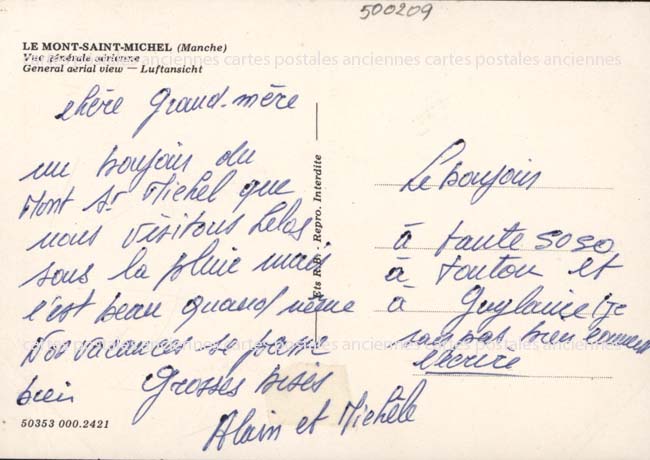 500209
LE MONT-SAINT-MICHEL (Manche)
Vue générale aérienne
General aerial view — Luftansicht
cartes postales anciennes cartes postales anciennes cartes postales anciennes
chère Grand-mère
un bonjour du
Mont St Michel que
nous visitons helas
sous la pluie mais
c'est beau quand même
Nos vacances se passe
bien Grosses bises
Alain et Michèle
50353 000.2421
Ets R. - Repro. Interdite
Le bonjour
à tante SoSo
à tonton et
à Guylaine (je
sais pas bien comment
l'écrire
cartes postales anciennes cartes postales anciennes cartes postales anciennes